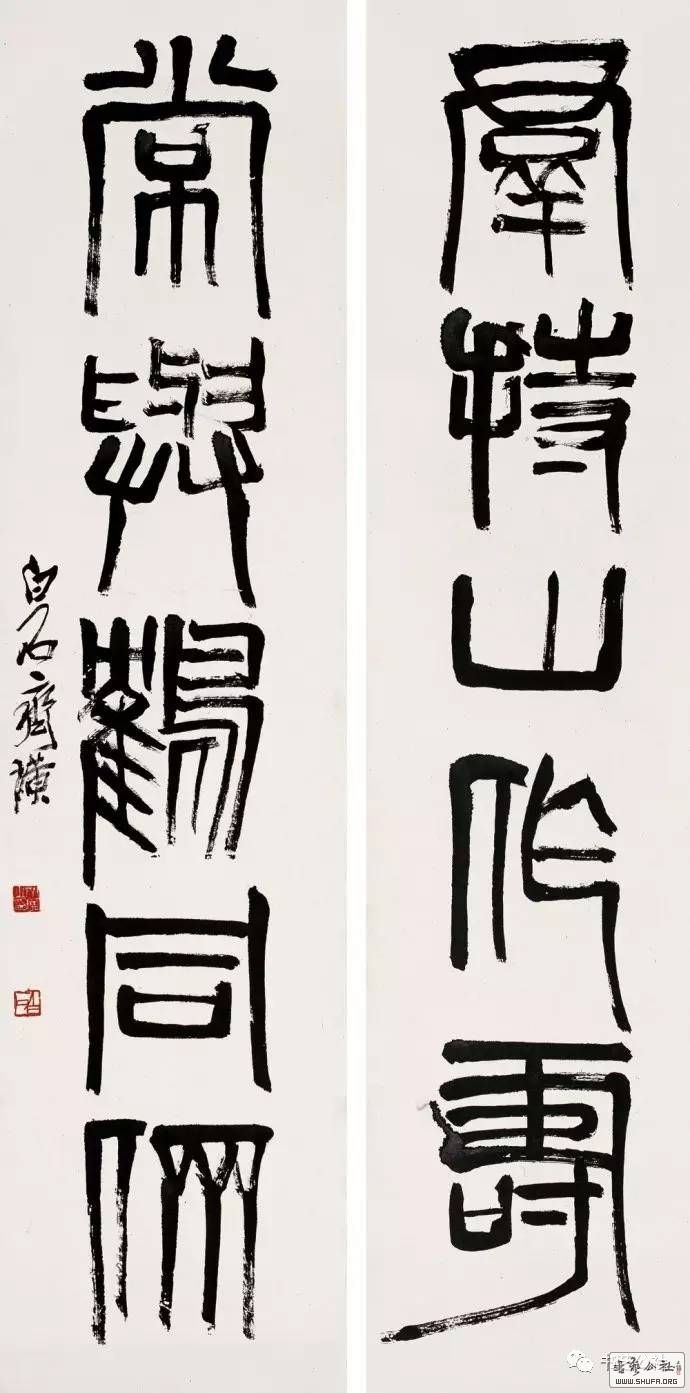 羣持山作壽
常與鶴同儕
白石齊璜
白石
書藝公社
WWW.SHUFA.ORG